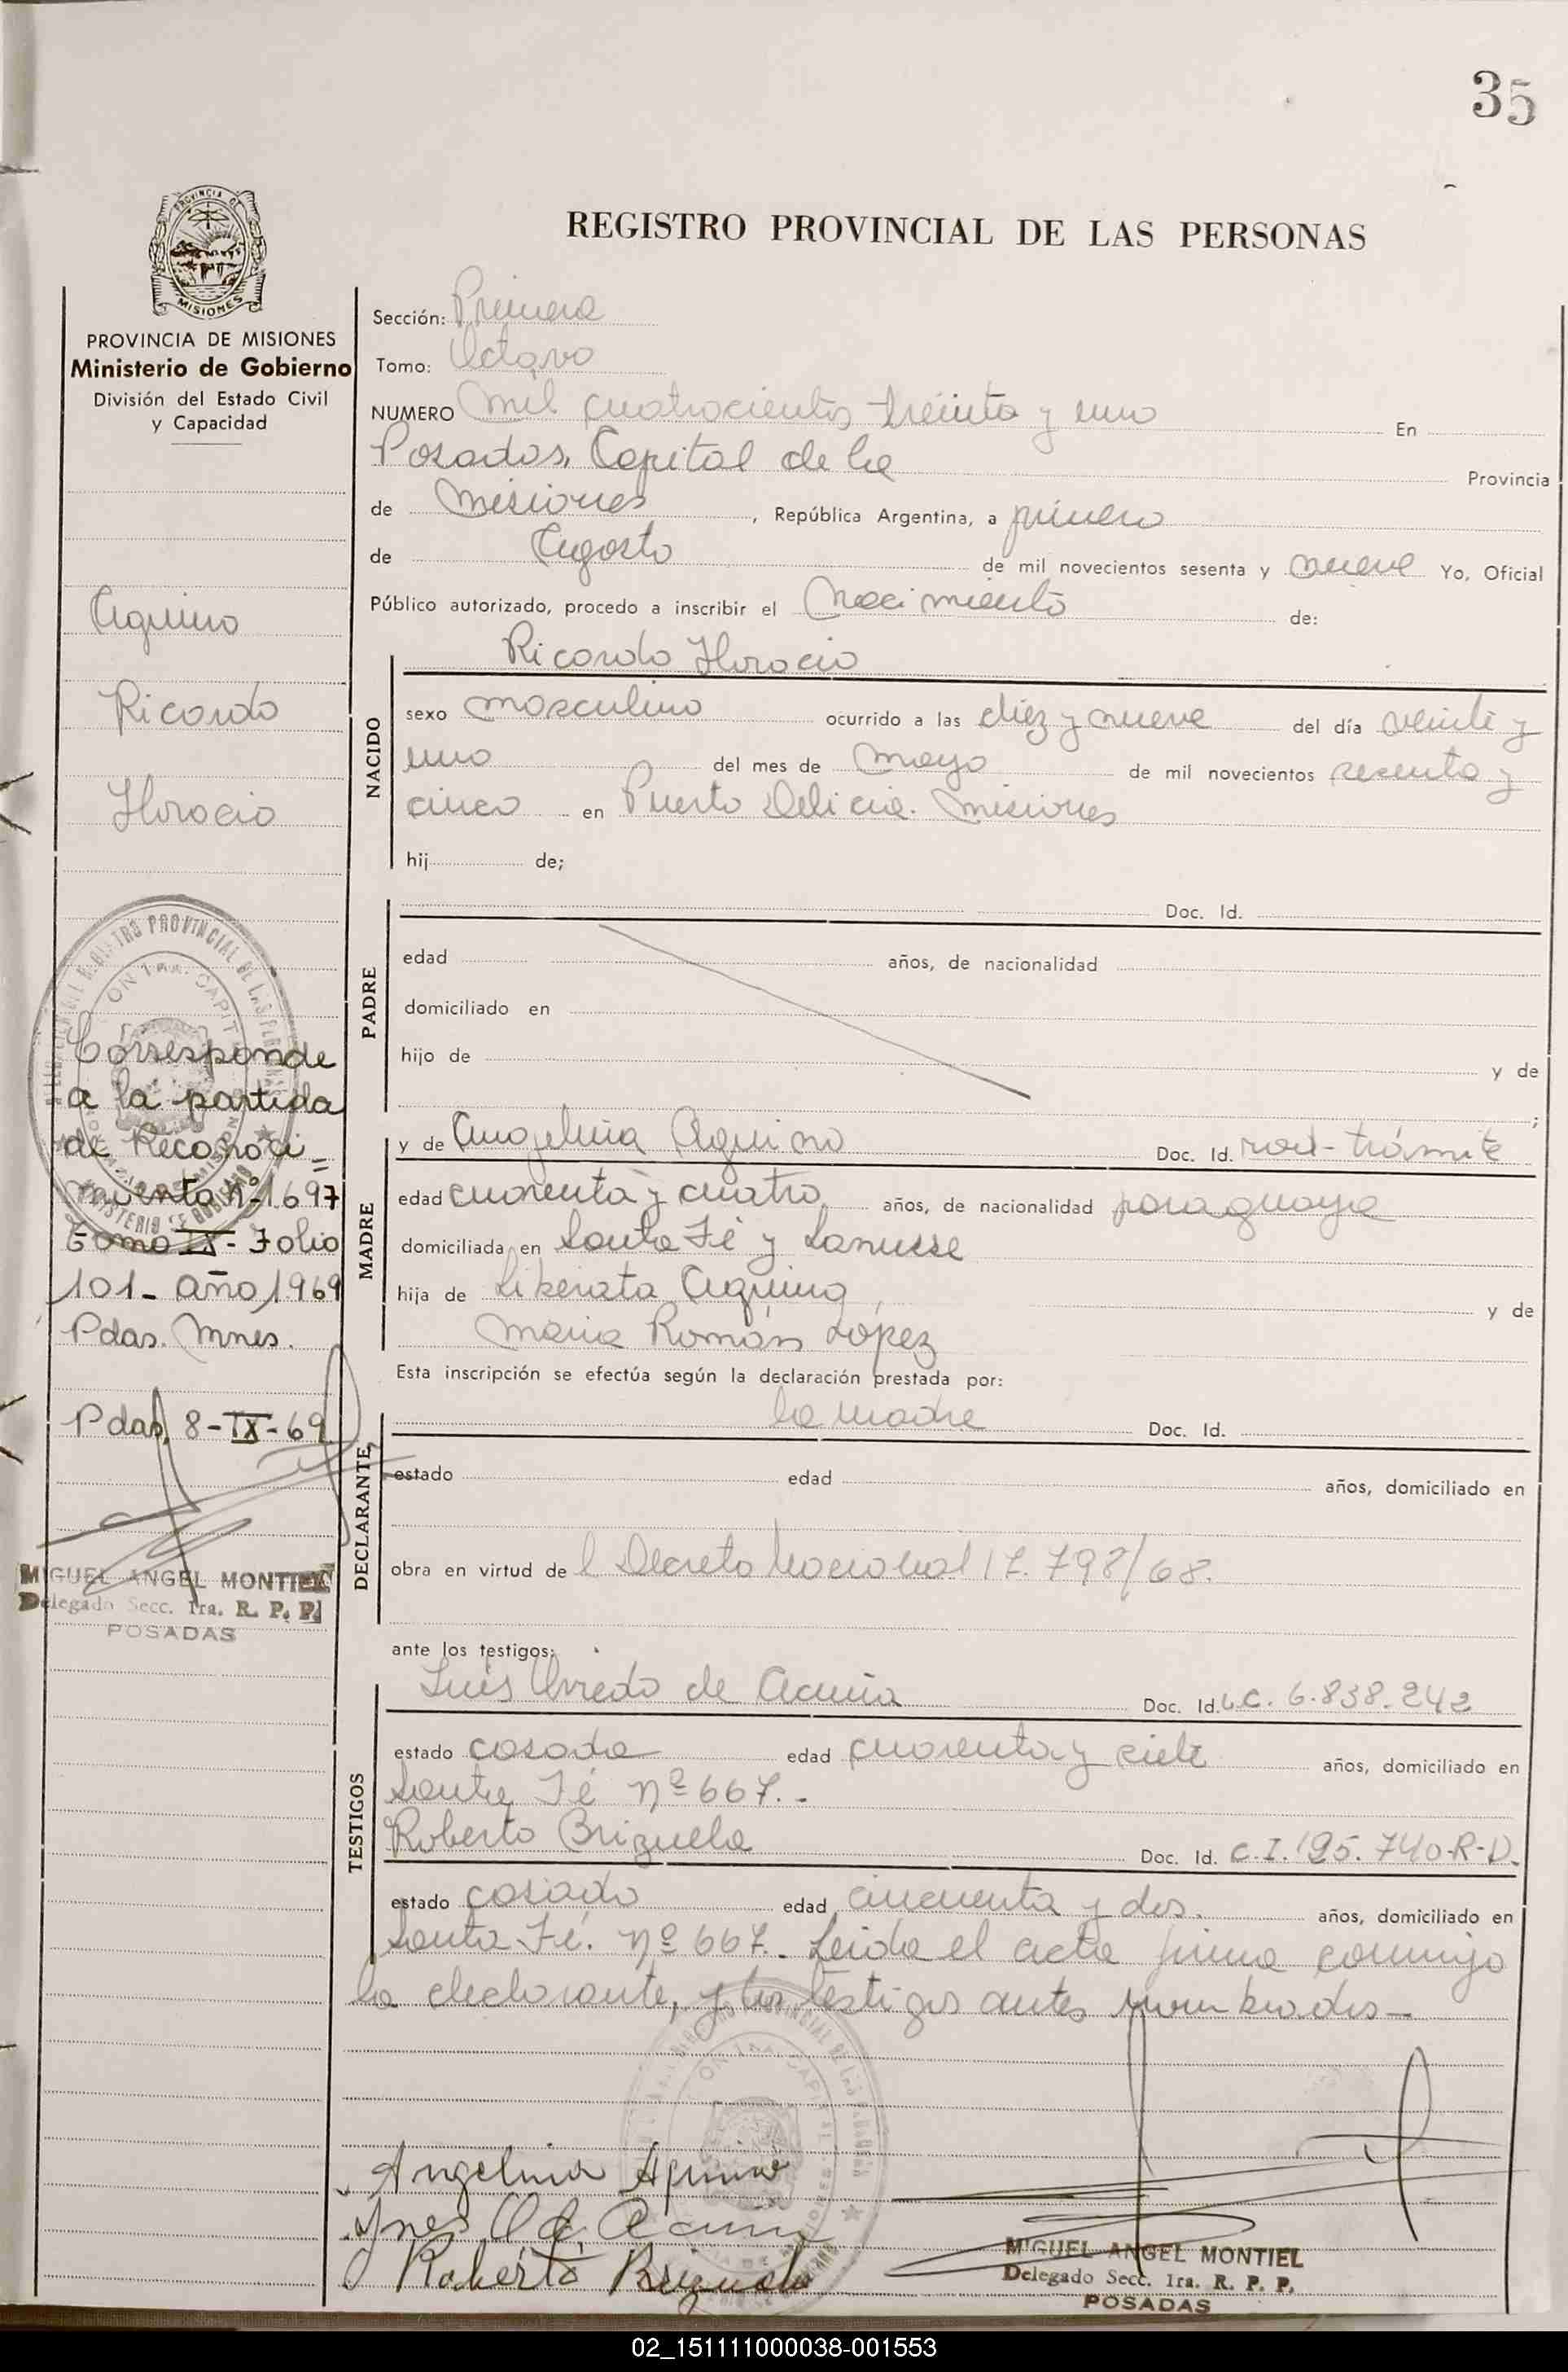 35
PROVINCIA DE
MISIONES
REGISTRO PROVINCIAL DE LAS PERSONAS
PROVINCIA DE MISIONES
Ministerio de Gobierno
División del Estado Civil
y Capacidad
Aquino
Ricardo
Horacio
Corresponde
a la partida
de Reconoci-
miento Nº 1697
Tomo IX - Folio
101 - año 1969
Pdas. Mnes.
Pdas, 8-IX-69
MIGUEL ANGEL MONTIEL
Delegado Secc. 1ra. R. P. P.
POSADAS
Sección: Primera
Tomo: Octavo
NUMERO Mil cuatrocientos treinta y uno En
Posadas, Capital de la Provincia
de Misiones, República Argentina, a primero
de Agosto de mil novecientos sesenta y nueve Yo, Oficial
Público autorizado, procedo a inscribir el Nacimiento de:
NACIDO
Ricardo Horacio
sexo masculino ocurrido a las diez y nueve del día veinti y
uno del mes de Mayo de mil novecientos sesenta y
cinco en Puerto Delicia. Misiones
hij de;
PADRE
Doc. Id.
edad años, de nacionalidad
domiciliado en
hijo de y de
;
MADRE
y de Angelina Aquino Doc. Id. trámite
edad cuarenta y cuatro años, de nacionalidad paraguaya
domiciliada en Santa Fé y Lanusse
hija de Liberata Aquino y de
Maria Román López
Esta inscripción se efectúa según la declaración prestada por:
DECLARANTE
la madre Doc. Id.
estado edad años, domiciliado en
obra en virtud de l Decreto Nacional 17.798/68.
ante los testigos:
TESTIGOS
Ovredo de Acuña Doc. Id. L.C. 6.838.242
estado casada edad cuarenta y siete años, domiciliado en
Santa Fé nº 667.-
Roberto Brizuela Doc. Id. C.I. 195.740-R-D.
estado casado edad cincuenta y dos. años, domiciliado en
Santa Fé. nº 667.- Leida el acta firma conmigo
la declarante, y los testigos antes nombrados-
Angelina Aquino
Ynes O de Acuña
Roberto Brizuela
MIGUEL ANGEL MONTIEL
Delegado Secc. 1ra. R. P. P.
POSADAS
02_151111000038-001553